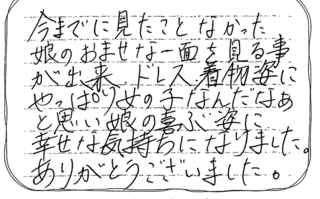 今までに見たことなかった
娘のおませな一面を見る事
が出来、ドレス、着物姿に
やっぱり女の子なんだなぁ
と思い娘の喜ぶ姿に
幸せな気持ちになりました。
ありがとうございました。